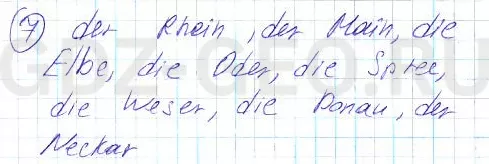 7 der Rhein, der Main, die
Elbe, die Oder, die Spree,
die Weser, die Donau, der
Neckar